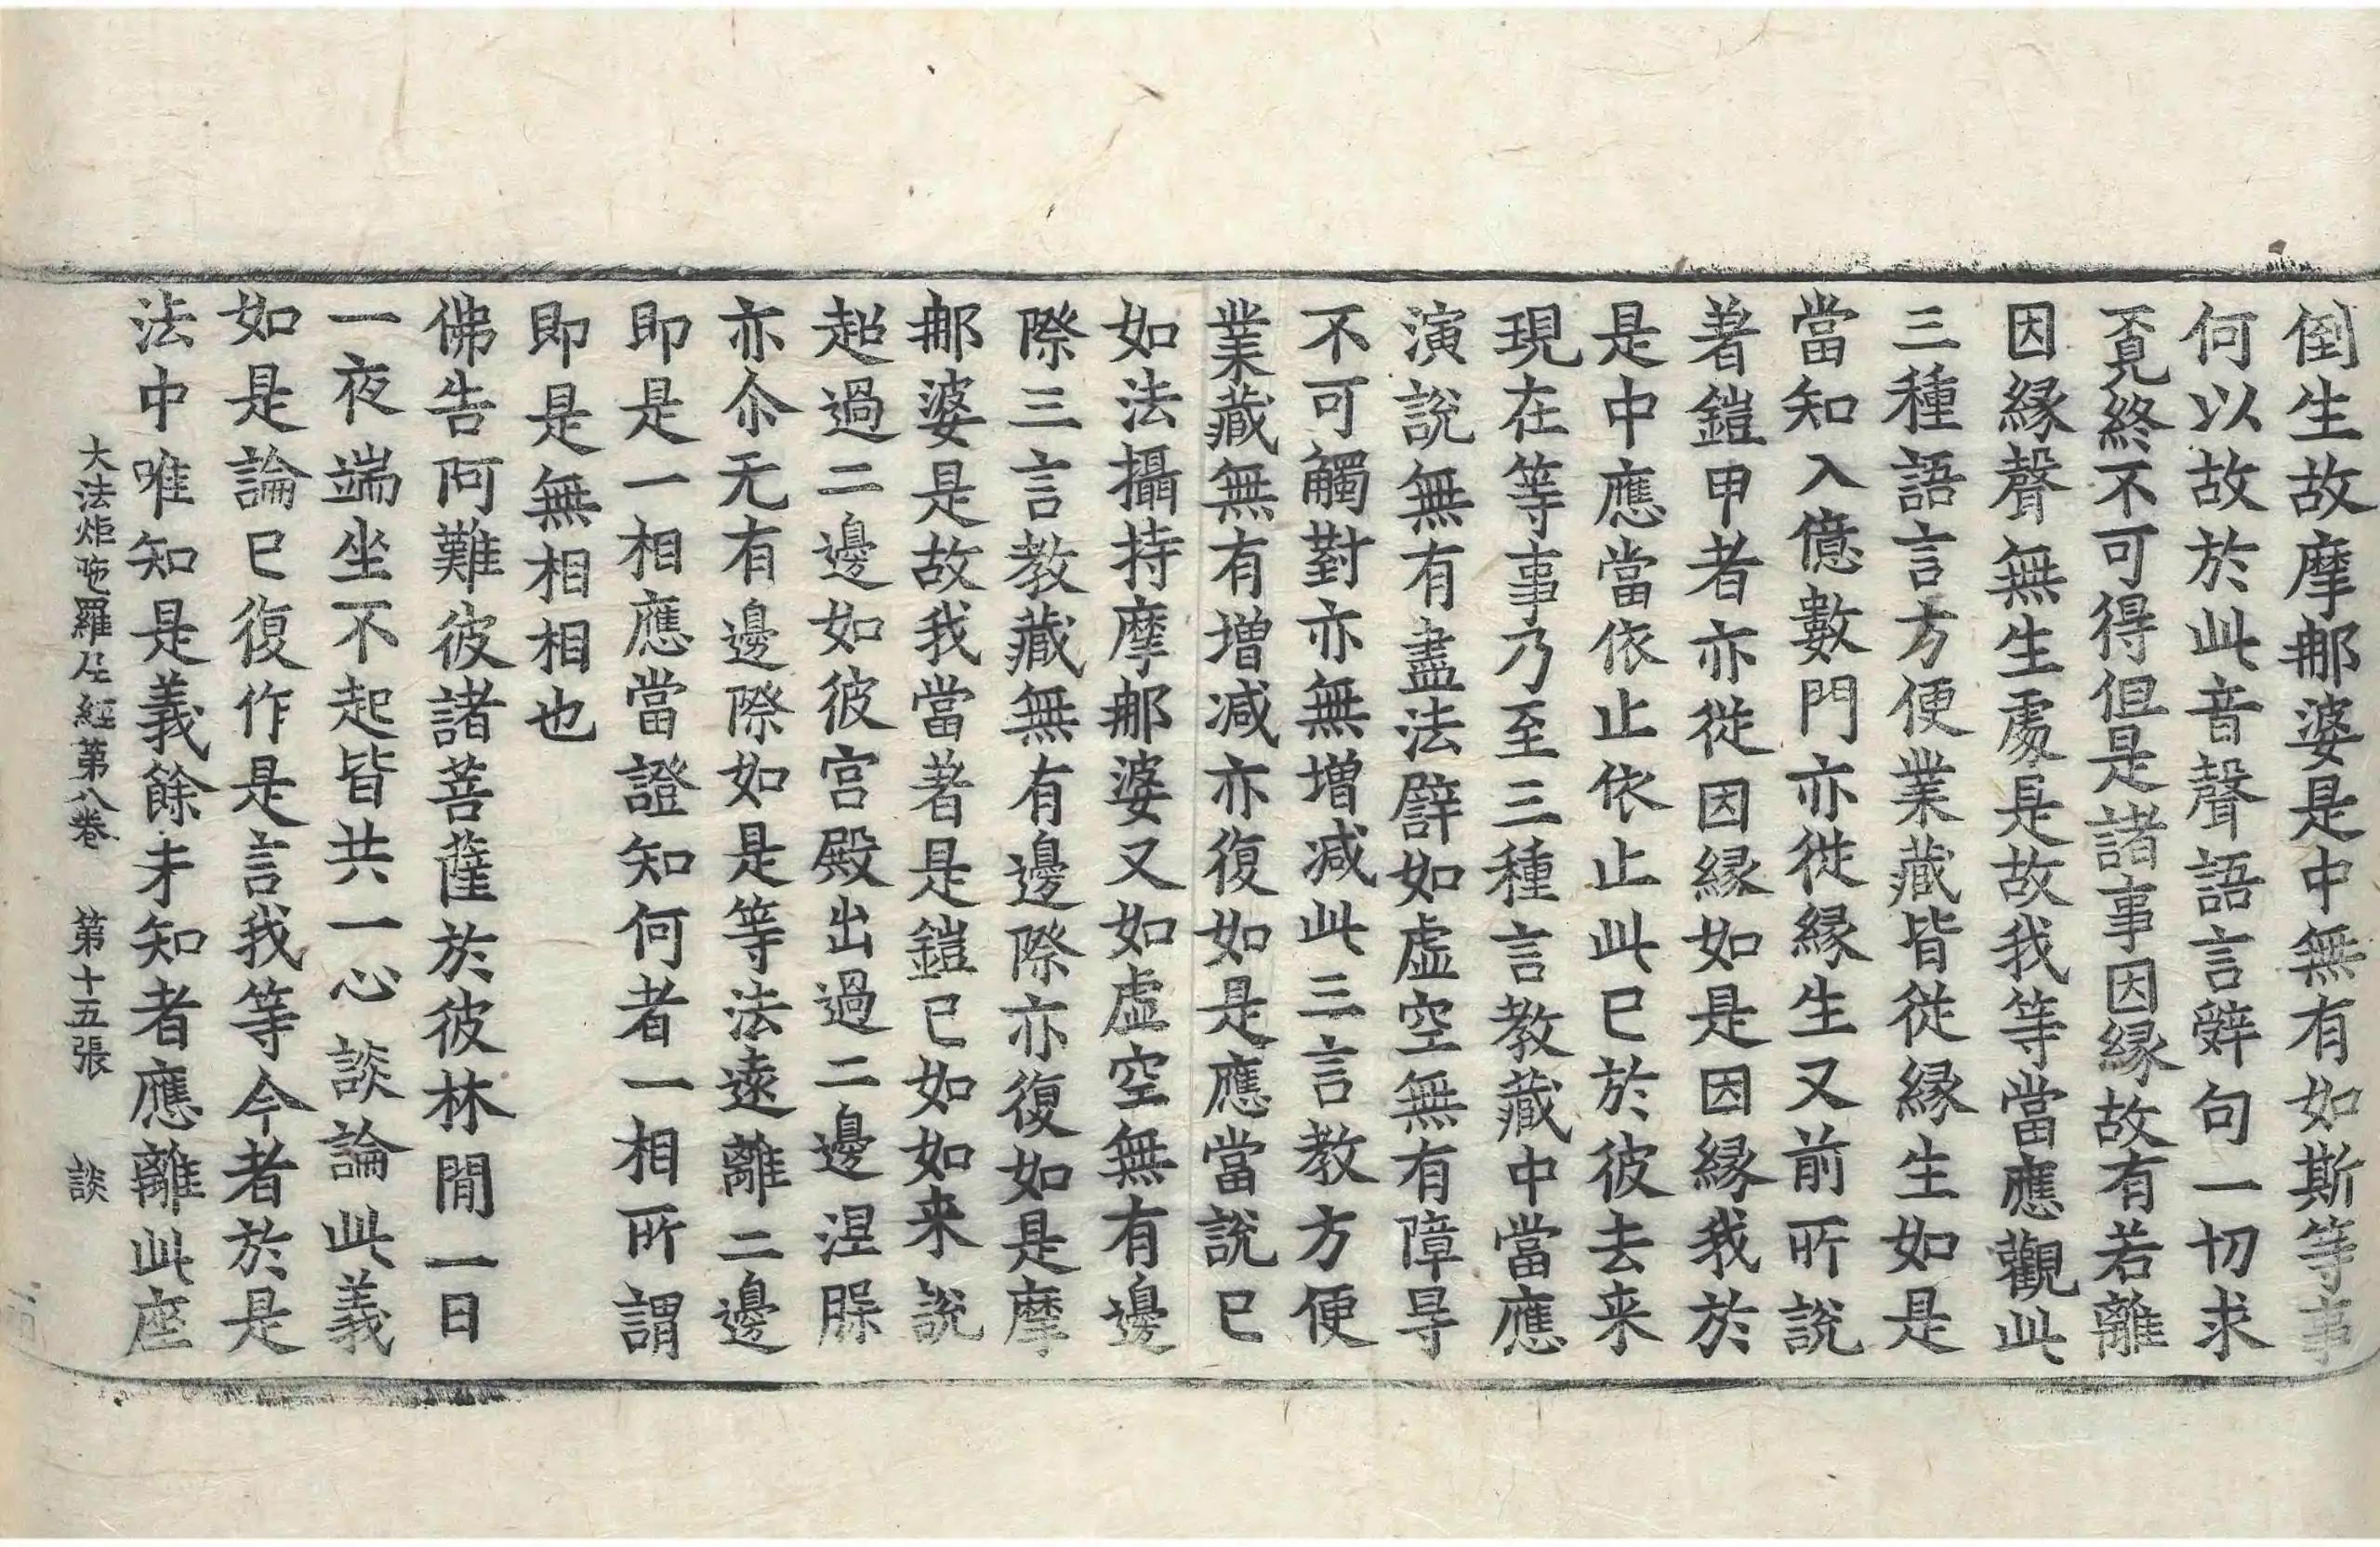 倒生故摩郍婆是中無有如斯等事
何以故於此音聲語言辤句一切求
覔終不可得但是諸事因緣故有若離
因緣聲無生處是故我等當應觀此
三種語言方便業藏皆從緣生如是
當知入億數門亦從緣生又前所說
著鎧甲者亦從因緣如是因緣我於
是中應當依止依止此已於彼去来
現在等事乃至三種言教藏中當應
演說無有盡法譬如虛空無有障㝵
不可觸對亦無增減此三言教方便
業藏無有增減亦復如是應當說已
如法攝持摩郍婆又如虛空無有邊
際三言教藏無有邊際亦復如是摩
郍婆是故我當著是鎧已如如来說
超過二邊如彼宮殿出過二邊涅槃
亦尒无有邊際如是等法遠離二邊
即是一相應當證知何者一相所謂
即是無相相也
佛告阿難彼諸菩薩於彼林閒一日
一夜端坐不起皆共一心談論此義
如是論已復作是言我等今者於是
法中唯知是義餘未知者應離此座
大法炬陁羅尼經第八卷　第十五張　談